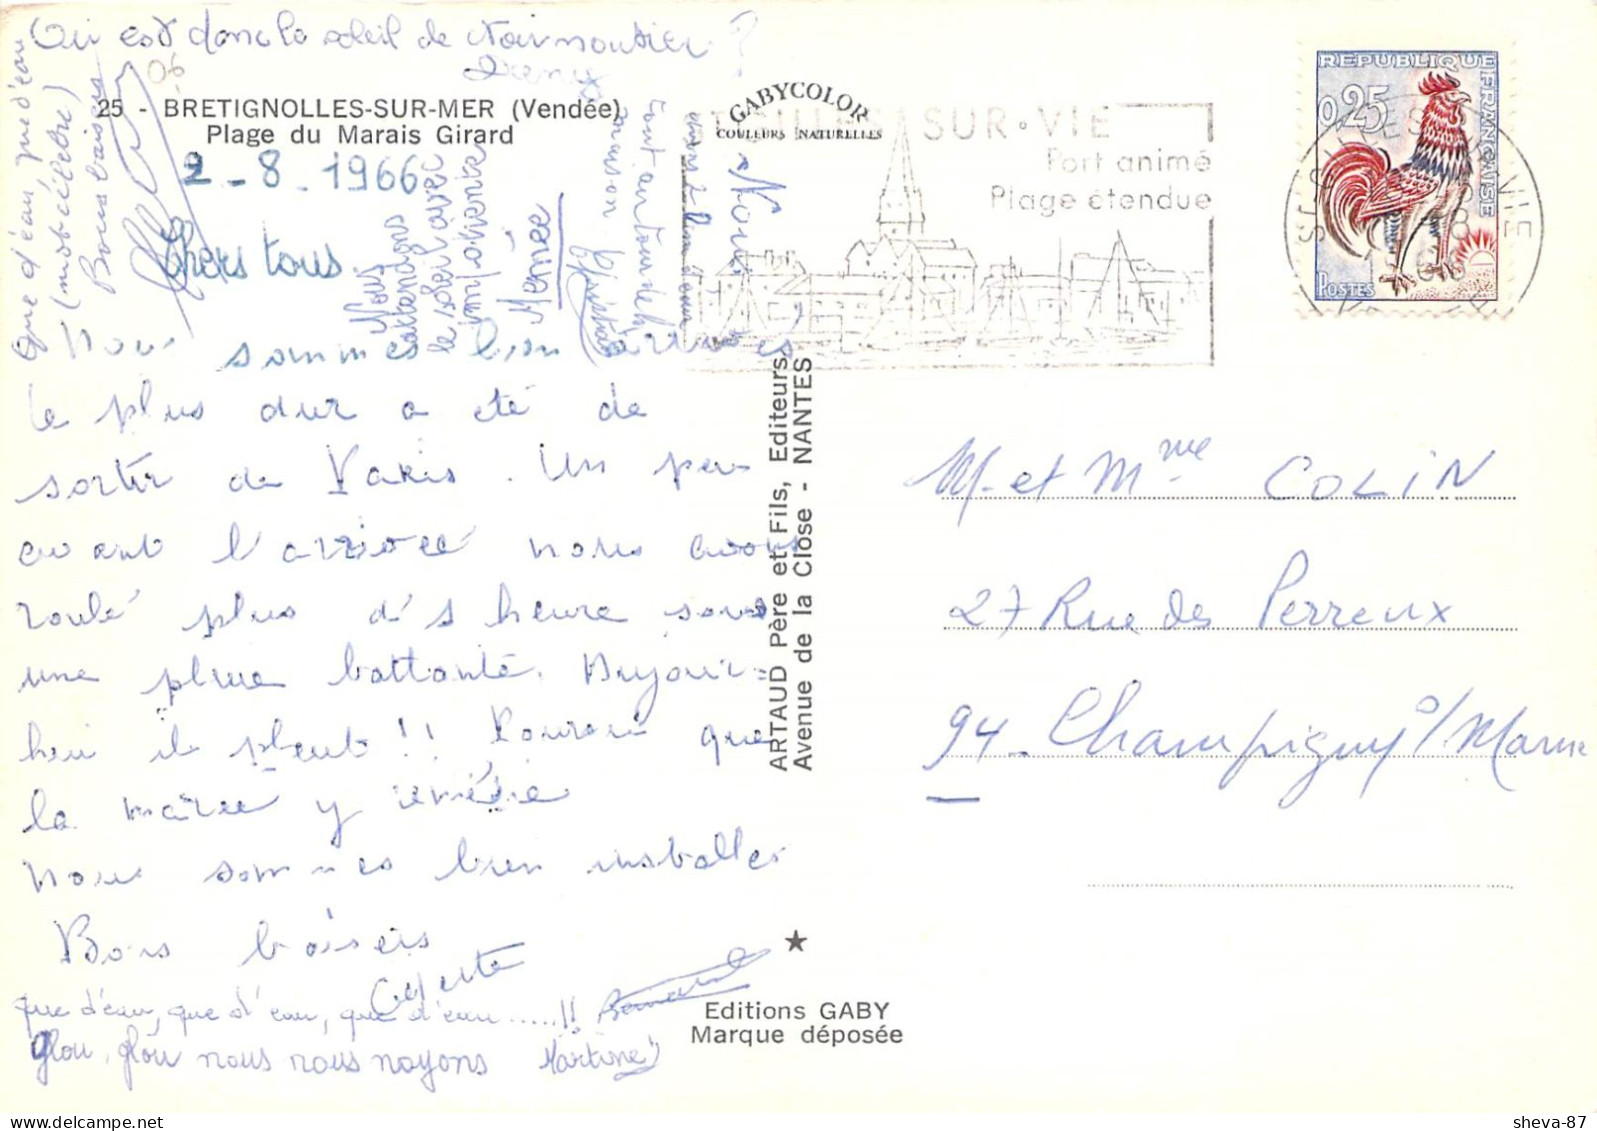 Où est donc le soleil de Noirmoutier ?
Que d'eau, que d'eau
(mot célèbre)
Bons baisers
06
25 - BRETIGNOLLES-SUR-MER (Vendée)
Plage du Marais Girard
GABYCOLOR
COULEURS NATURELLES
2-8-1966
Chers tous
Nous
attendons
le soleil avec
impatience
Mémée
Nous
tout autour de
ST GILLES SUR·VIE
Port animé
Plage étendue
REPUBLIQUE
FRANÇAISE
0,25
POSTES
Nous sommes bien arrivés
le plus dur a été de
sortir de Paris. Un peu
avant l'arrivée nous avons
roulé plus d's heure sous
une pluie battante. Aujour=
hui il pleut !! Pourvu que
la marée y remédie
Nous sommes bien installés
Bons baisers
que d'eau, que d'eau, que d'eau.....!!
Glou, glou nous nous noyons Martine
ARTAUD Père et Fils, Editeurs
Avenue de la Close - NANTES
Editions GABY
Marque déposée
M. et Mme COLIN
27 Rue des Perreux
94 - Champigny s/Marne
sheva-87